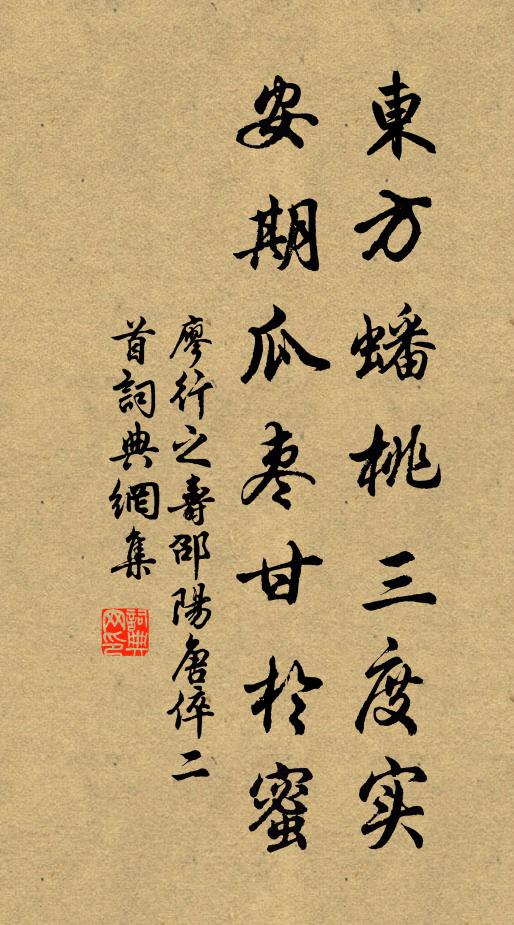 東方蟠桃三度实
安期瓜枣甘於蜜
廖行之壽邵陽唐倅二
首詞典網集
詞典网印